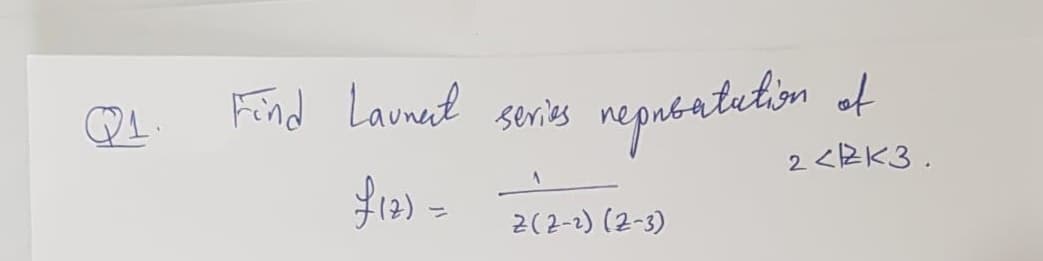 Q1. Find Laurent series representation of
f(z) = 1 / z(z-2)(z-3) 2<|z|<3.